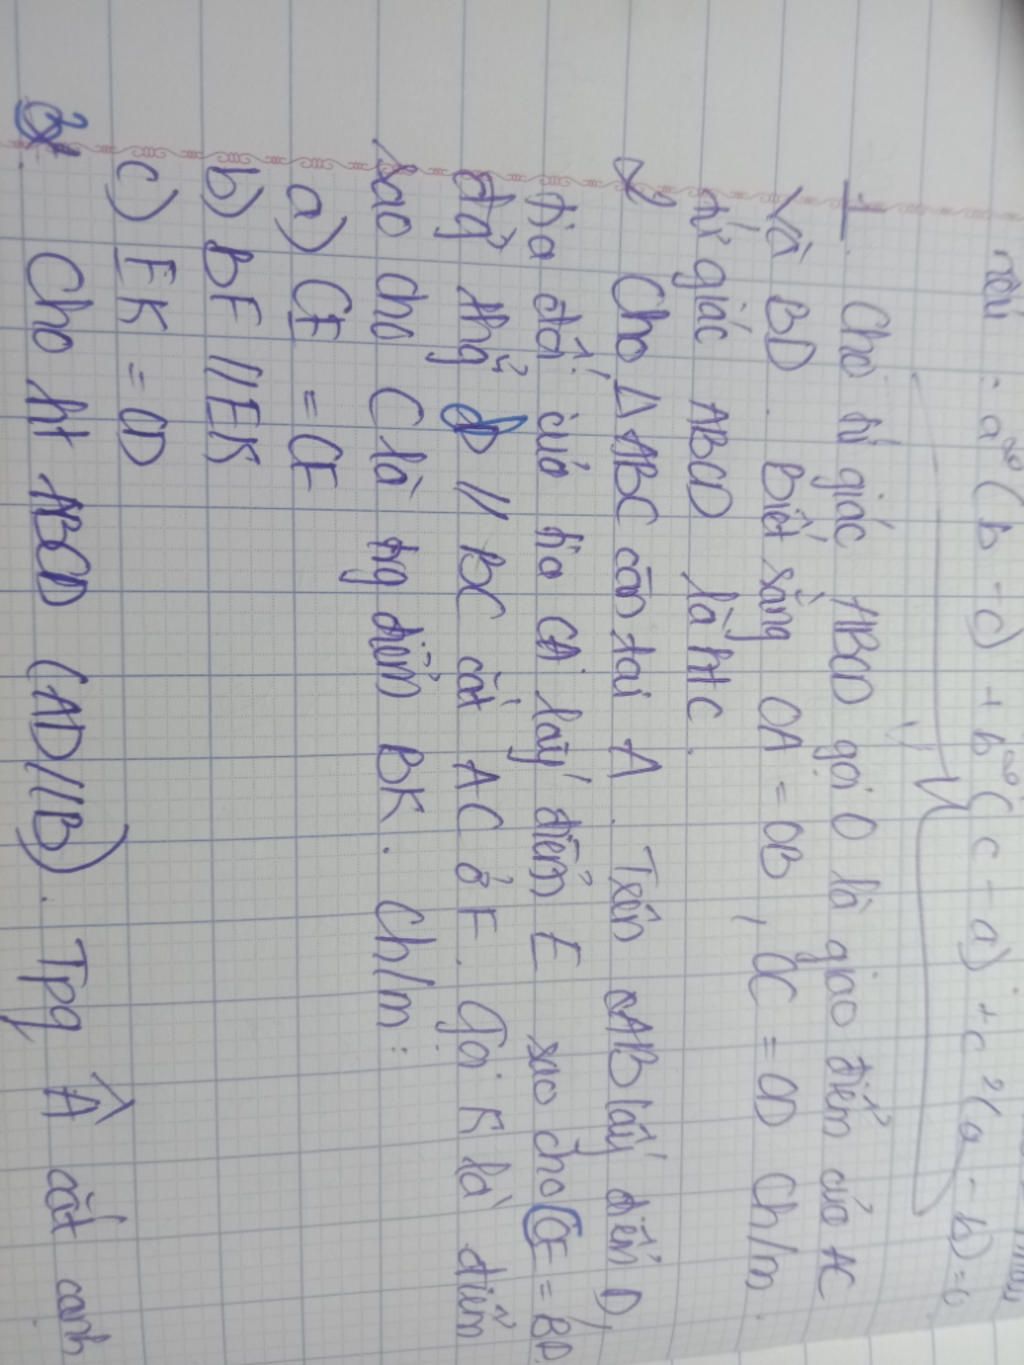 nếu : a²(b - c) + b²(c - a) + c²(a - b) = 0
1. Cho tứ giác ABCD gọi O là giao điểm của AC
và BD. Biết rằng OA = OB, OC = OD Ch/m.
tứ giác ABCD là htc.
2 Cho Δ ABC cân tại A. Trên cAB lấy điểm D,
tia đối của tia CA lấy điểm E sao cho CE = BD.
đg thg d // BC cắt AC ở F. Gọi K là điểm
sao cho C là tg điểm BK. Ch/m:
a) CE = CF
b) BF // EK
c) EK = CD
3. Cho ht ABCD (AD//B). Tpg Â cắt cạnh